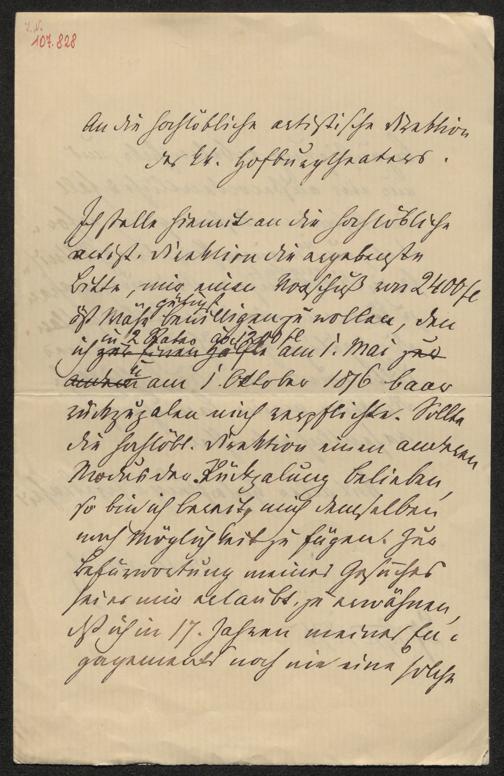 I. N.
107.828
An die hochlöbliche artistische Direktion
des kk. Hofburgtheaters.
Ich stelle hiemit an die hochlöbliche
artist. Direktion die ergebenste
Bitte, mir einen Vorschuß von 2400 fl
öst Währ gütigst bewilligen zu wollen, den
ich in 2 Raten à 1200 fl am 1. Mai
u am 1. Oktober 1876 baar
rückzuzalen mich verpflichte. Sollte
die hochlöbl. Direktion einen anderen
Modus der Rückzalung belieben,
so bin ich bereit, mich demselben
nach Möglichkeit zu fügen. Zur
Befürwortung meines Gesuches
sei es mir erlaubt, zu erwähnen,
daß ich in 17. Jahren meines En-
gagements noch nie eine solche